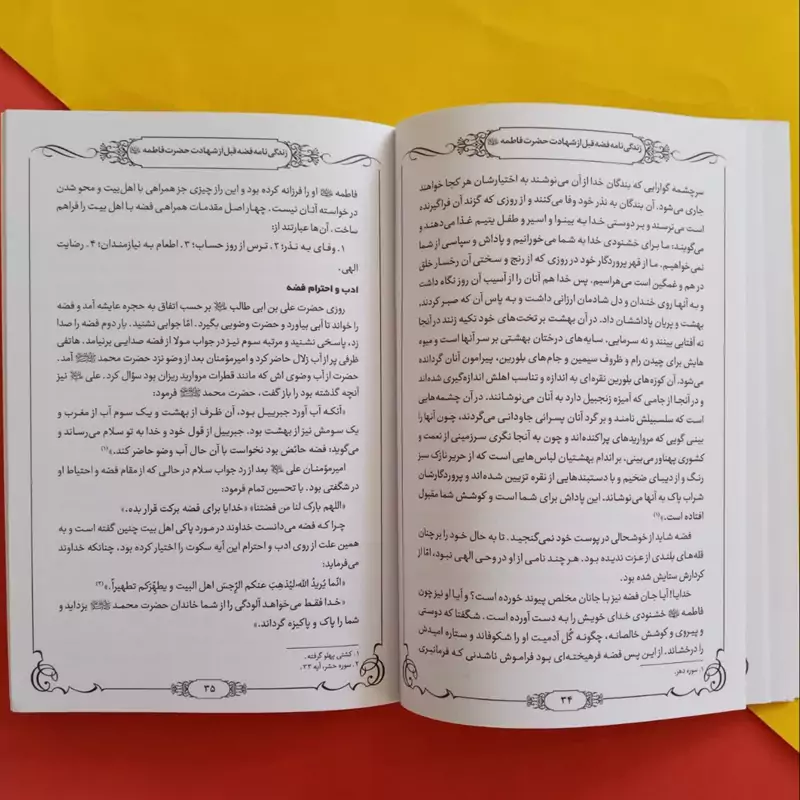 زندگی نامه فضه قبل از شهادت حضرت فاطمه ﷺ
سرچشمه گوارایی که بندگان خدا از آن می‌نوشند به اختیارشان هر کجا خواهند
جاری می‌شود. آن بندگان به نذر خود وفا می‌کنند و از روزی که گزند آن فراگیرنده
است می‌ترسند و بر دوستی خدا به بینوا و اسیر و طفل یتیم غذا می‌دهند و
می‌گویند: ما برای خشنودی خدا به شما می‌خورانیم و پاداش و سپاسی از شما
نمی‌خواهیم. ما از قهر پروردگار خود در روزی که از رنج و سختی آن رخسار خلق
در هم و غمگین است می‌هراسیم. پس خدا هم آنان را از آسیب آن روز نگاه داشت
و به آنها روی خندان و دل شادمان ارزانی داشت و به پاس آن که صبر کردند،
بهشت و پرنیان پاداششان داد. در آن بهشت بر تخت‌های خود تکیه زنند در آنجا
نه آفتابی بینند و نه سرمایی. سایه‌های درختان بهشتی بر سر آنها است و میوه
هایش برای چیدن رام و ظروف سیمین و جام‌های بلورین، پیرامون آنان گردانده
می‌شود. آن کوزه‌های بلورین نقره‌ای به اندازه و تناسب اهلش اندازه‌گیری شده‌اند
و در آنجا از جامی که آمیزه زنجبیل دارد به آنان می‌نوشانند. در آن چشمه‌هایی
است که سلسبیلش نامند و بر گرد آنان پسرانی جاودانی می‌گردند، چون آنها را
بینی گویی که مرواریدهای پراکنده‌اند و چون به آنجا نگری سرزمینی از نعمت و
کشوری پهناور می‌بینی، بر اندام بهشتیان لباس‌هایی است که از حریر نازک سبز
رنگ و از دیبای ضخیم و با دستبندهایی از نقره تزیین شده‌اند و پروردگارشان
شراب پاک به آنها می‌نوشاند. این پاداش برای شما است و کوشش شما مقبول
افتاده است.»(۱)
فضه شاید از خوشحالی در پوست خود نمی‌گنجید. تا به حال خود را بر چنان
قله‌های بلندی از عزت ندیده بود. هر چند نامی از او در وحی الهی نبود، امّا از
کردارش ستایش شده بود.
خدایا! آیا جان فضه نیز با جانان مخلص پیوند خورده است؟ و آیا او نیز چون
فاطمه ﷺ خشنودی خدای خویش را به دست آورده است. شگفتا که دوستی
و پیروی و کوشش خالصانه، چگونه گُل آدمیت او را شکوفاند و ستاره امیدش
را درخشاند. از این پس فضه فرهیخته‌ای بود فراموش ناشدنی که فرمانبری
۱. سوره دهر.
۳۴
زندگی نامه فضه قبل از شهادت حضرت فاطمه ﷺ
فاطمه ﷺ او را فرزانه کرده بود و این راز چیزی جز همراهی با اهل‌بیت و محو شدن
در خواسته آنان نیست. چهار اصل مقدمات همراهی فضه با اهل بیت را فراهم
ساخت. آن‌ها عبارتند از:
۱. وفای به نذر؛ ۲. ترس از روز حساب؛ ۳. اطعام به نیازمندان؛ ۴. رضایت
الهی.
ادب و احترام فضه
روزی حضرت علی بن ابی طالب ﷺ بر حسب اتفاق به حجره عایشه آمد و فضه
را خواند تا آبی بیاورد و حضرت وضویی بگیرد. امّا جوابی نشنید. بار دوم فضه را صدا
زد، پاسخی نشنید و مرتبه سوم نیز در جواب مولا از فضه صدایی برنیامد. هاتفی
ظرفی پر از آب زلال حاضر کرد و امیرمؤمنان بعد از وضو نزد حضرت محمد ﷺ آمد.
حضرت از آب وضوی اش که مانند قطرات مروارید ریزان بود سؤال کرد. علی ﷺ نیز
آنچه گذشته بود را باز گفت. حضرت محمد ﷺ فرمود:
«آنکه آب آورد جبرییل بود، آن ظرف از بهشت و یک سوم آب از مغرب و
یک سومش نیز از بهشت بود. جبرییل از قول خود و خدا به تو سلام می‌رساند و
می‌گوید؛ فضه حائض بود نخواست با آن حال آب وضو حاضر کند.»(۱)
امیرمؤمنان علی ﷺ بعد از رد جواب سلام در حالی که از مقام فضه و احتیاط او
در شگفتی بود. با تحسین تمام فرمود:
«اللهم بارک لنا من فضتنا» «خدایا برای فضه برکت قرار بده.»
چرا که فضه می‌دانست خداوند در مورد پاکی اهل بیت چنین گفته است و به
همین علت از روی ادب و احترام این آیه سکوت را اختیار کرده بود، چنانکه خداوند
می‌فرماید:
«انّما یُریدُ الله لیُذهِبَ عنکم الرِّجسَ اهل البیت و یطهّرَکم تطهیراً.»(۲)
«خدا فقط می‌خواهد آلودگی را از شما خاندان حضرت محمد ﷺ بزداید و
شما را پاک و پاکیزه گرداند.»
۱. کشتی پهلو گرفته.
۲. سوره حشر، آیه ۳۳.
۳۵